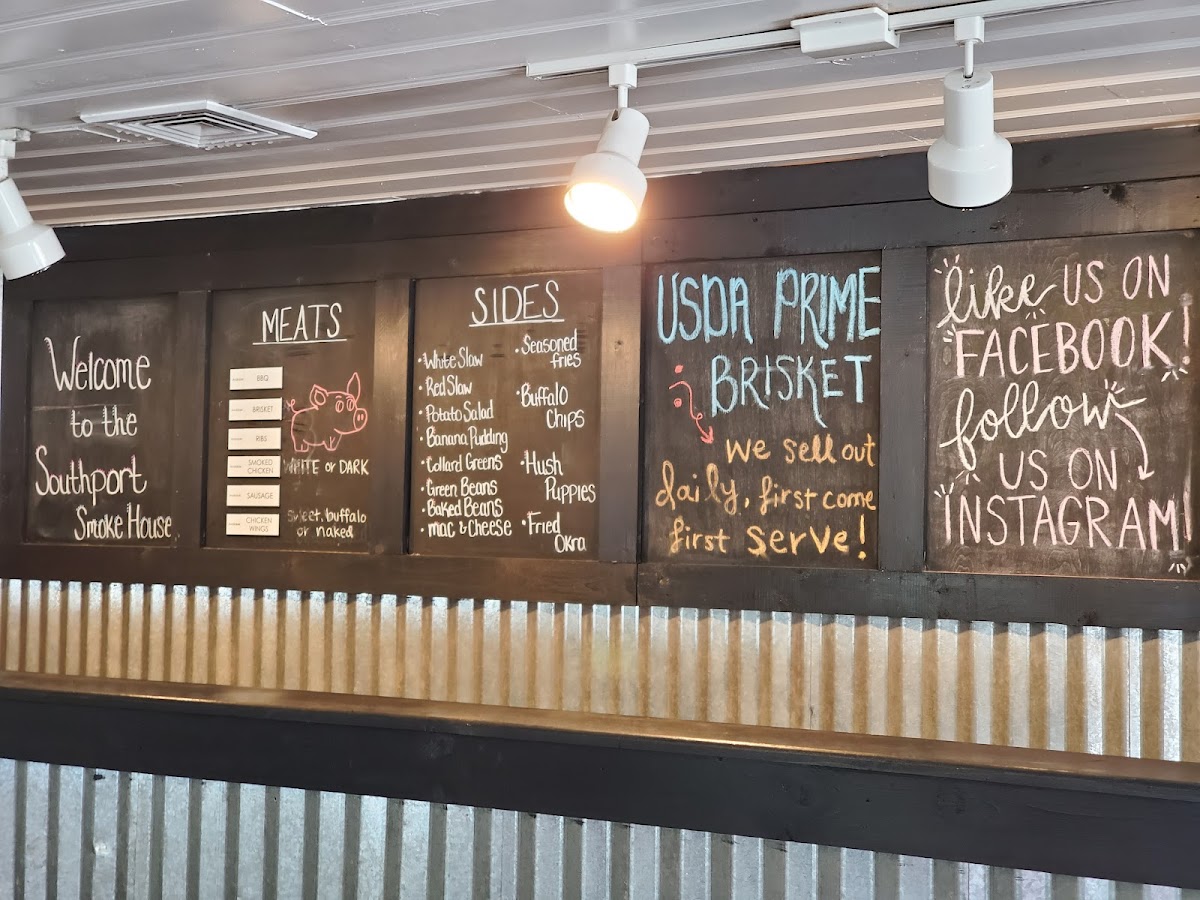 Welcome
to the
Southport
Smoke House
MEATS
BBQ
BRISKET
RIBS
SMOKED
CHICKEN
WHITE or DARK
SAUSAGE
CHICKEN
WINGS
sweet, buffalo
or naked
SIDES
• White Slaw
• Red Slaw
• Potato Salad
• Banana Pudding
• Collard Greens
• Green Beans
• Baked Beans
• mac & Cheese
• Seasoned
fries
• Buffalo
Chips
• Hush
Puppies
• Fried
Okra
USDA PRIME
BRISKET
We sell out
daily, first come
first serve!
like US ON
FACEBOOK!
follow
US ON
INSTAGRAM!